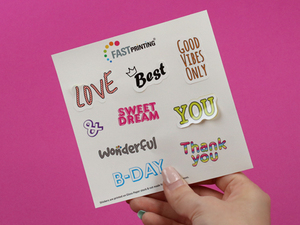 FASTPRINTING
LOVE
Best
GOOD
VIBES
ONLY
&
SWEET
DREAM
YOU
Wonderful
Thank
you
B-DAY